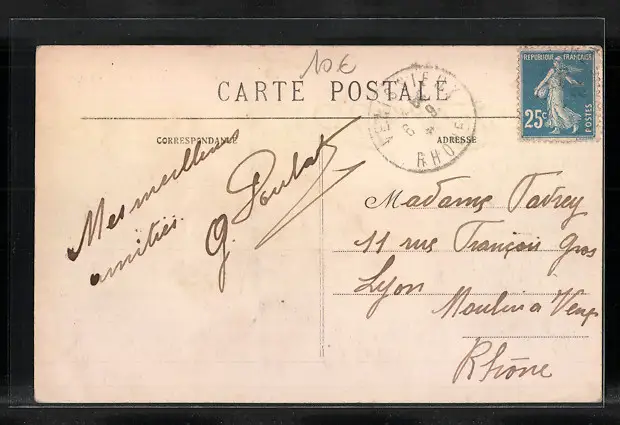 10€
CARTE POSTALE
REPUBLIQUE FRANÇAISE
25c
POSTES
RHONE
CORRESPONDANCE
ADRESSE
Mes meilleures
amitiés.
G.
Madame
11 rue François Gros
Lyon
Moulin a Vent
Rhône